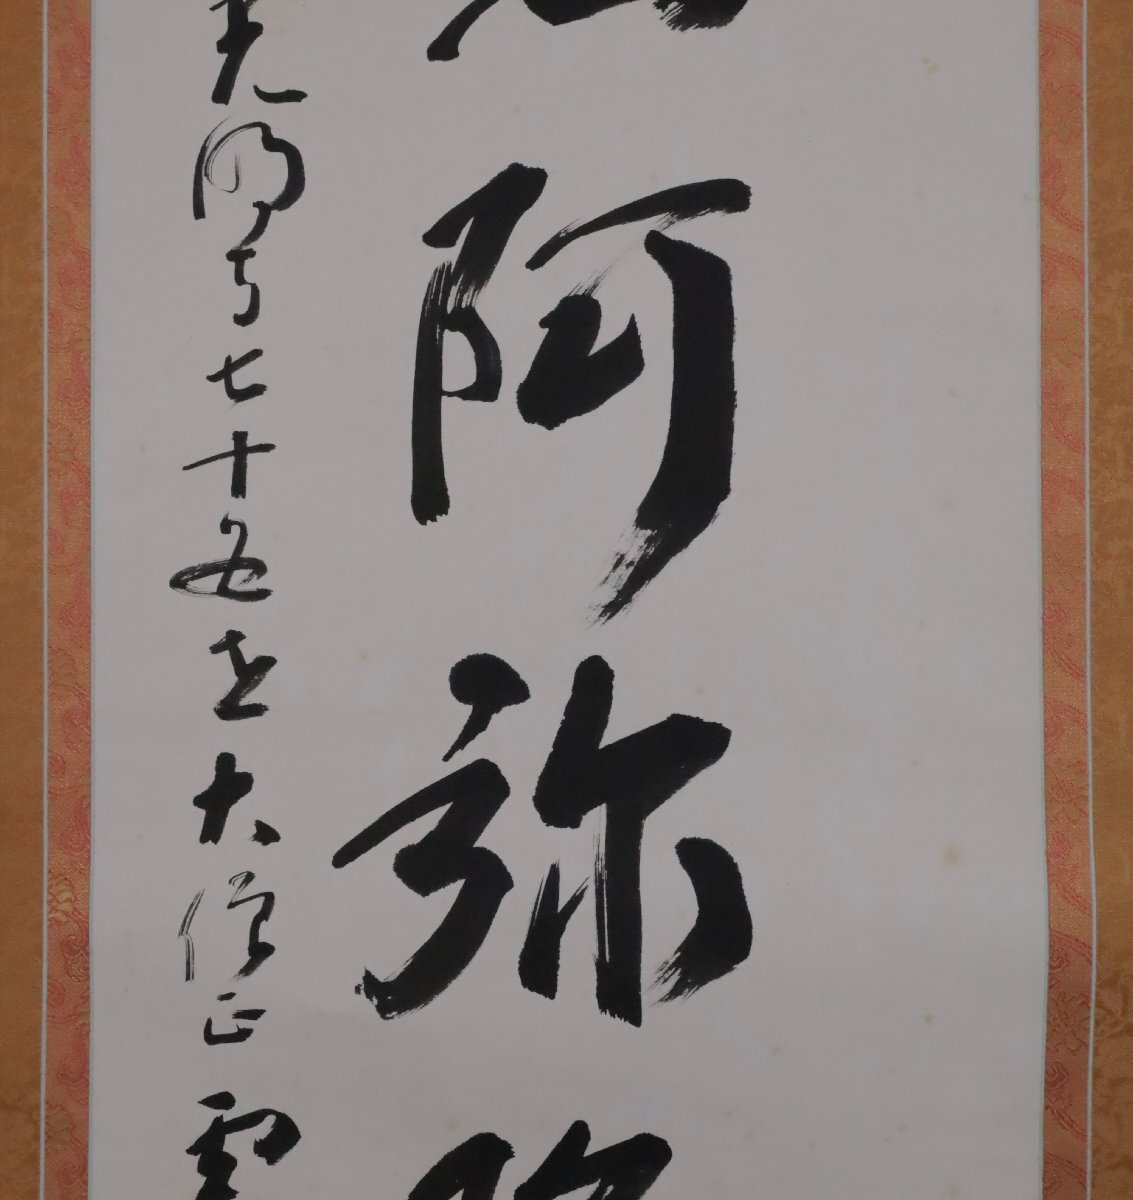 阿弥
光明寺七十五世大僧正